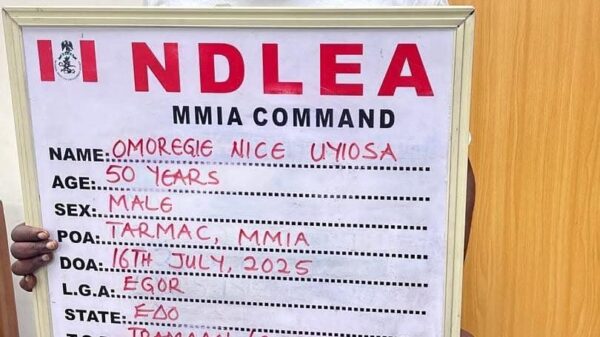 NDLEA
MMIA COMMAND
NAME: OMOREGIE NICE UYIOSA
AGE: 50 YEARS
SEX: MALE
POA: TARMAC, MMIA
DOA: 16TH JULY, 2025
L.G.A: EGOR
STATE: EDO